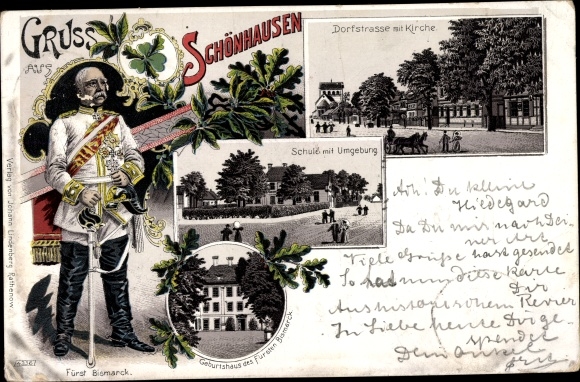 GRUSS
AUS
SCHÖNHAUSEN
Dorfstrasse mit Kirche.
Schule mit Umgebung
Geburtshaus des Fürsten Bismarck
Fürst Bismarck.
Verlag von Johann Lindenberg, Rathenow
Ach! Du kleine
Hildegard
Da Du mir nach Dei-
ner Art
Viele Grüße hast gesendet
So hat nun diese Karte
Dir
Aus historischem Revier
In Liebe heute Dir ge-
spendet
Dein Onkel